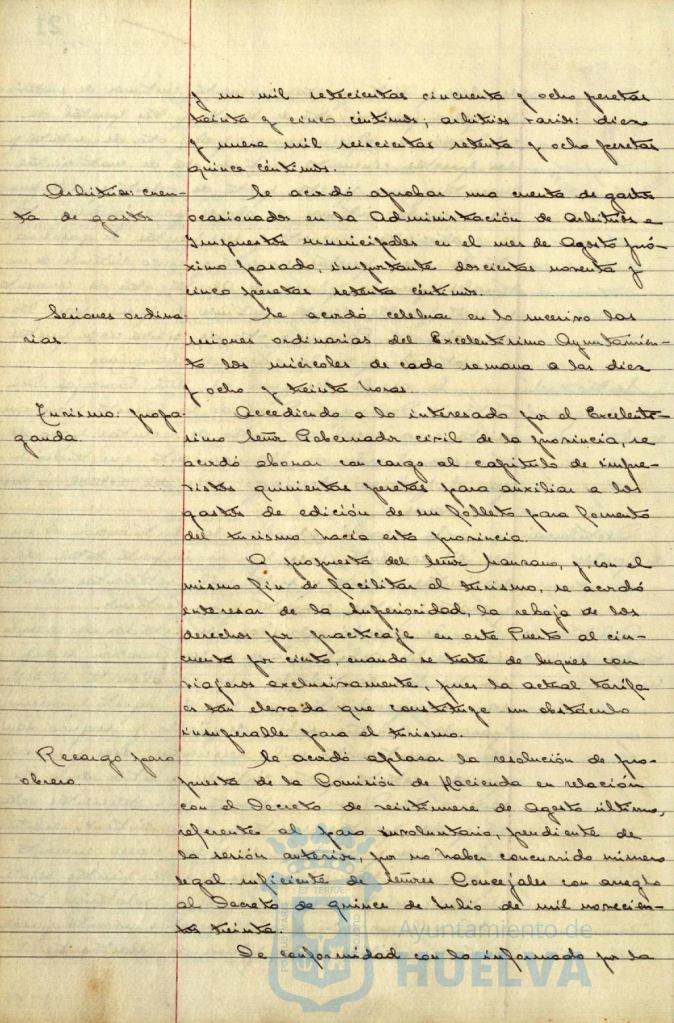 y un mil setecientas cincuenta y ocho pesetas
treinta y cinco céntimos; arbitrios varios: diez
y nueve mil seiscientas setenta y ocho pesetas
quince céntimos.
Arbitrios: cuen-
ta de gastos
Se acordó aprobar una cuenta de gastos
ocasionados en la Administración de Arbitrios e
Impuestos municipales en el mes de Agosto pró-
ximo pasado, importante doscientas noventa y
cinco pesetas setenta céntimos.
Sesiones ordina-
rias.
Se acordó celebrar en lo sucesivo las
sesiones ordinarias del Excelentísimo Ayuntamien-
to los miércoles de cada semana a las diez
y ocho y treinta horas.
Turismo: propa-
ganda
Accediendo a lo interesado por el Excelentí-
simo Señor Gobernador civil de la provincia, se
acordó abonar con cargo al capítulo de impre-
vistos quinientas pesetas para auxiliar a los
gastos de edición de un folleto para fomento
del turismo hacia esta provincia.
A propuesta del Señor Manzano, y con el
mismo fin de facilitar el turismo, se acordó
interesar de la Superioridad, la rebaja de los
derechos por practicaje en este Puerto al cin-
cuenta por ciento, cuando se trate de buques con
viajeros exclusivamente, pues la actual tarifa
es tan elevada que constituye un obstáculo
insuperable para el turismo.
Recargo paro
obrero
Se acordó aplazar la resolución de pro-
puesta de la Comisión de Hacienda en relación
con el Decreto de veintinueve de Agosto último,
referente al paro involuntario, pendiente de
la sesión anterior, por no haber concurrido número
legal suficiente de Señores Concejales con arreglo
al Decreto de quince de Julio de mil novecien-
tos treinta.
De conformidad con lo informado por la
Ayuntamiento de
HUELVA